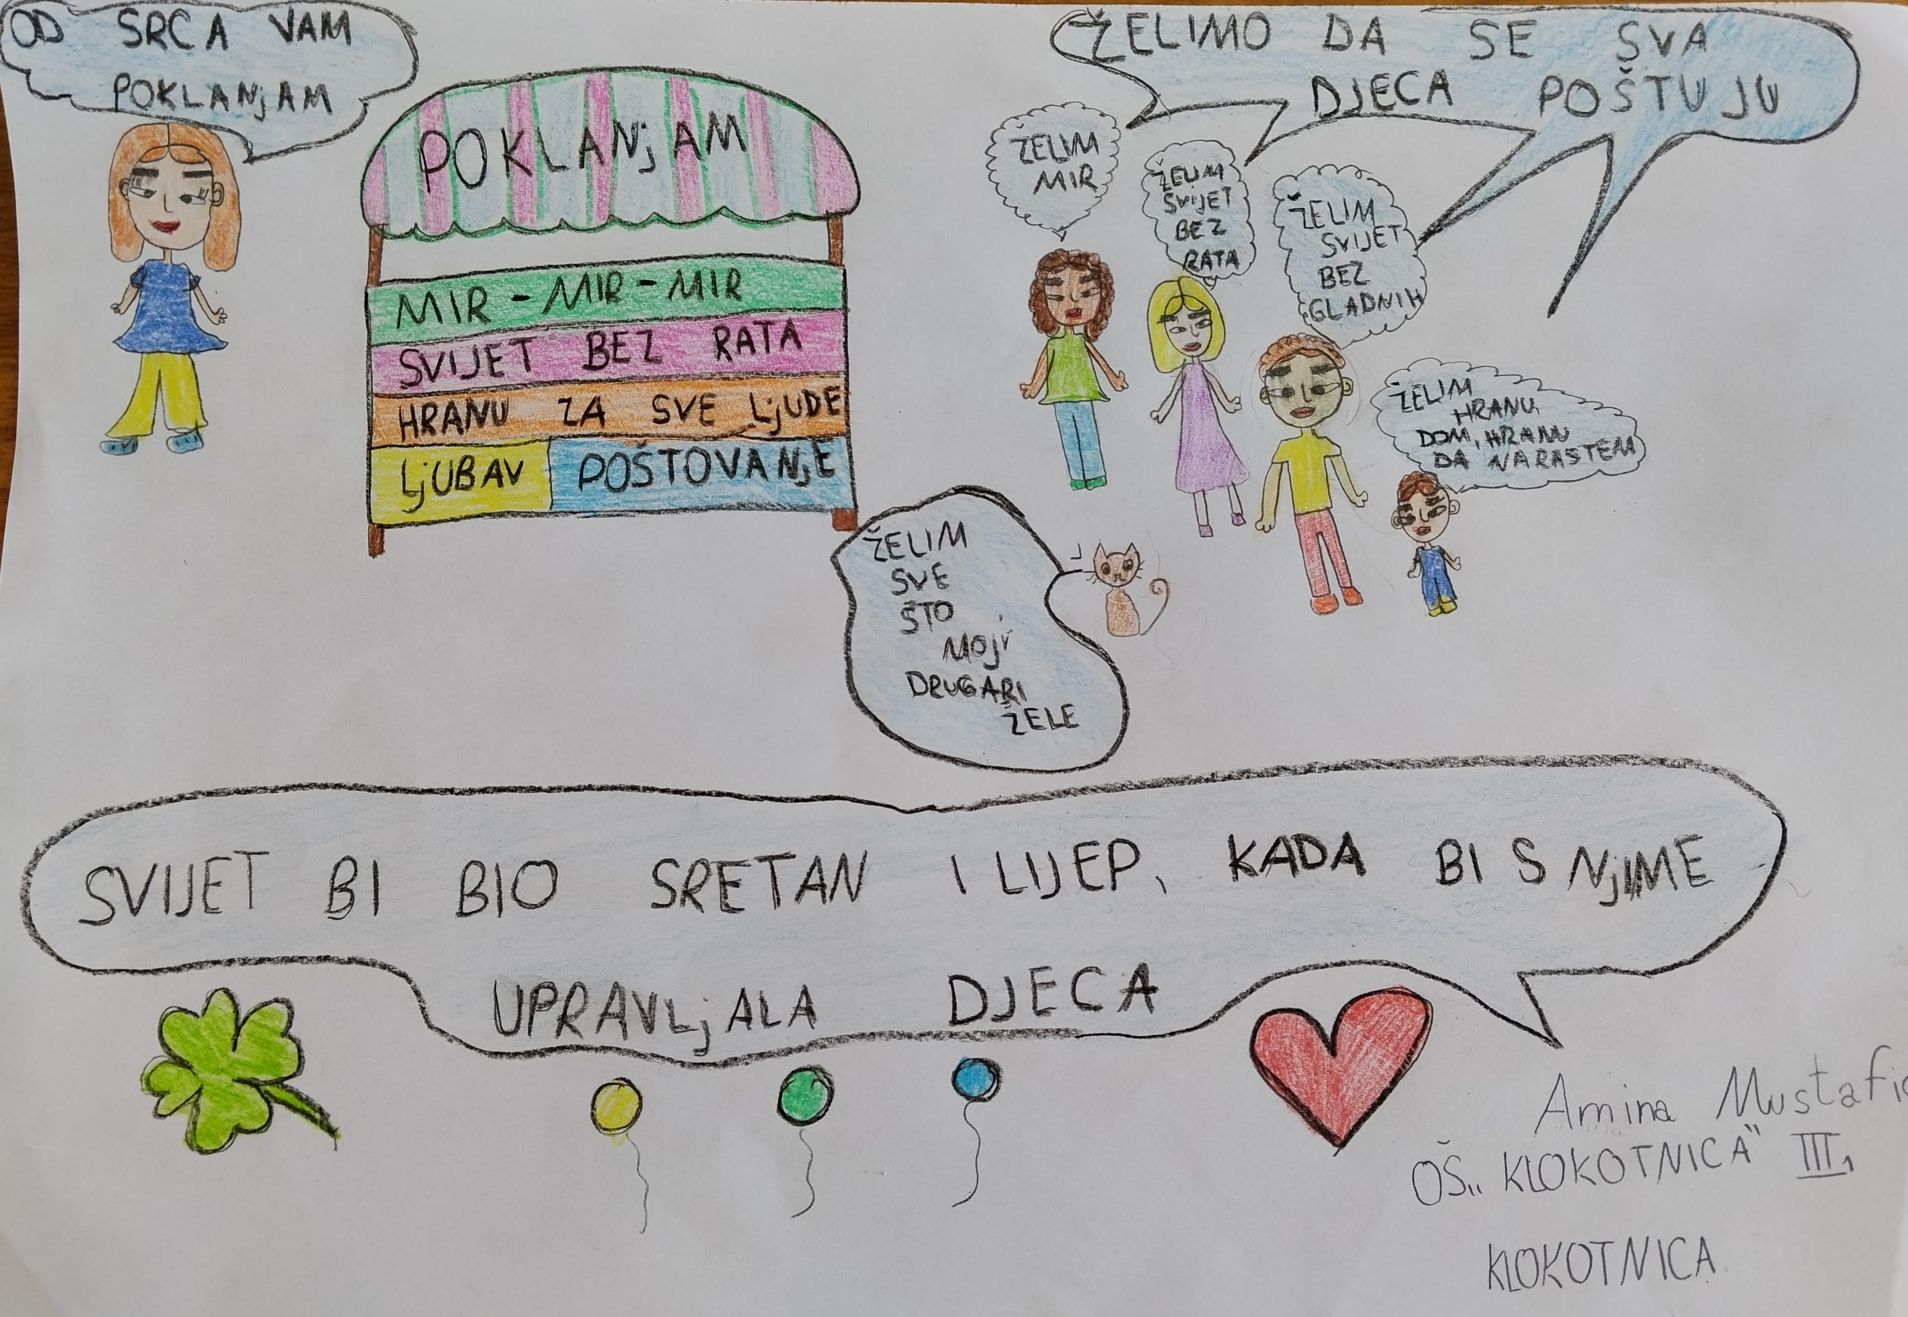 OD SRCA VAM
POKLANjAM
POKLANjAM
MIR - MIR - MIR
SVIJET BEZ RATA
HRANU ZA SVE LjUDE
LjUBAV POŠTOVANjE
ŽELIMO DA SE SVA
DJECA POŠTUJU
ŽELIM
MIR
ŽELIM
SVIJET
BEZ
RATA
ŽELIM
SVIJET
BEZ
GLADNIH
ŽELIM
HRANU,
DOM, HRANU
DA NARASTEM
ŽELIM
SVE
ŠTO
MOJi
DRUGARI
ŽELE
SVIJET BI BIO SRETAN I LIJEP, KADA BI S NjIME
UPRAVLjALA DJECA
Amina Mustafić
OŠ „KLOKOTNICA“ III1
KLOKOTNICA